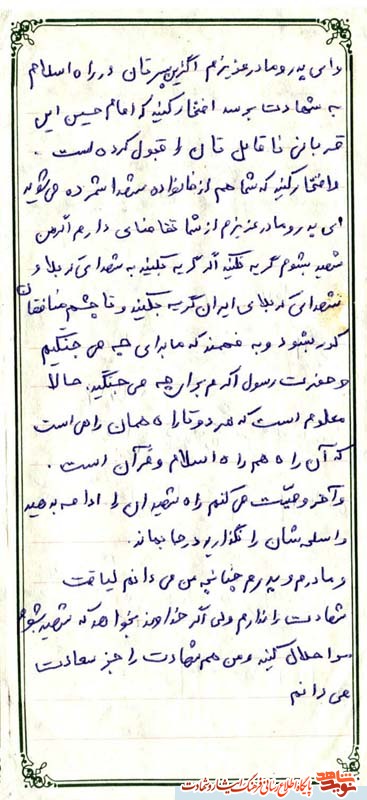 وای پدر و مادر عزیزم اگر این پسرتان در راه اسلام
به شهادت برسد افتخار کنید که امام حسین این
قربانی ناقابل تان را قبول کرده است .
و افتخار کنید که شما هم از خانواده شهدا شمرده می شوید
ای پدر و مادر عزیزم از شما تقاضای دارم اگر من
شهید بشوم گریه نکنید اگر گریه بکنید به شهدای کربلا و
شهدای کربلای ایران گریه بکنید و تا چشم منافقان
کور بشود و بفهمند که ما برای چه می جنگیم
و حضرت رسول اکرم برای چه می جنگید. حالا
معلوم است که هر دوتا راه همان راهی است
که آن راه هم راه اسلام و قرآن است .
و آخر وصیت می کنم راه شهیدان را ادامه بدهید
و اسلحه شان را نگذارید در جا بماند.
و مادرم و پدرم چنانچه من می دانم لیاقت
شهادت را ندارم ولی اگر خداوند بخواهد که شهید بشوم
مرا حلال کنید و من هم شهادت را جز سعادت
می دانم
نوید شاهد
پایگاه اطلاع رسانی فرهنگ ایثار و شهادت